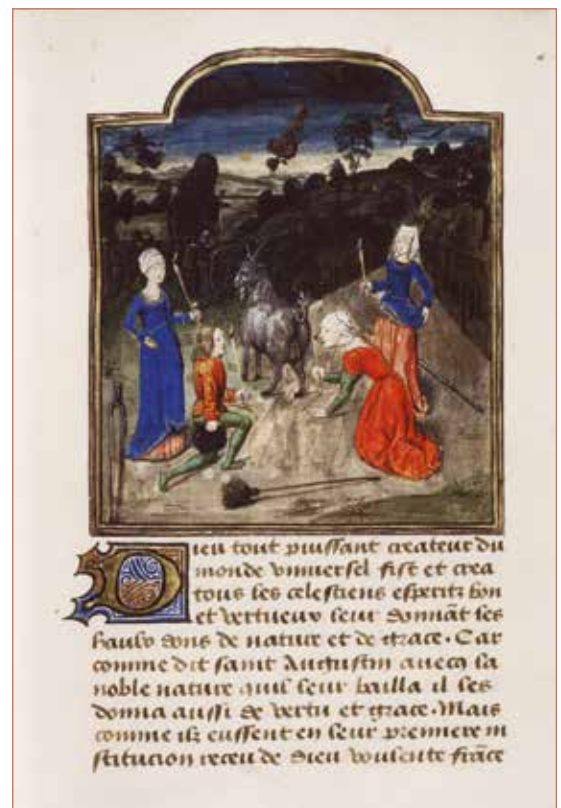 Dieu tout puissant createur du
monde vniuersel fist et crea
tous les celestiens esperitz bon
et vertueux leur donnãt les
haulx dons de nature et de grace. Car
comme dit saint Augustin auecq la
noble nature quil leur bailla il les
donna aussi de vertu et grace. Mais
comme ilz eussent en leur premiere in
stitucion receu de dieu voulente frãce